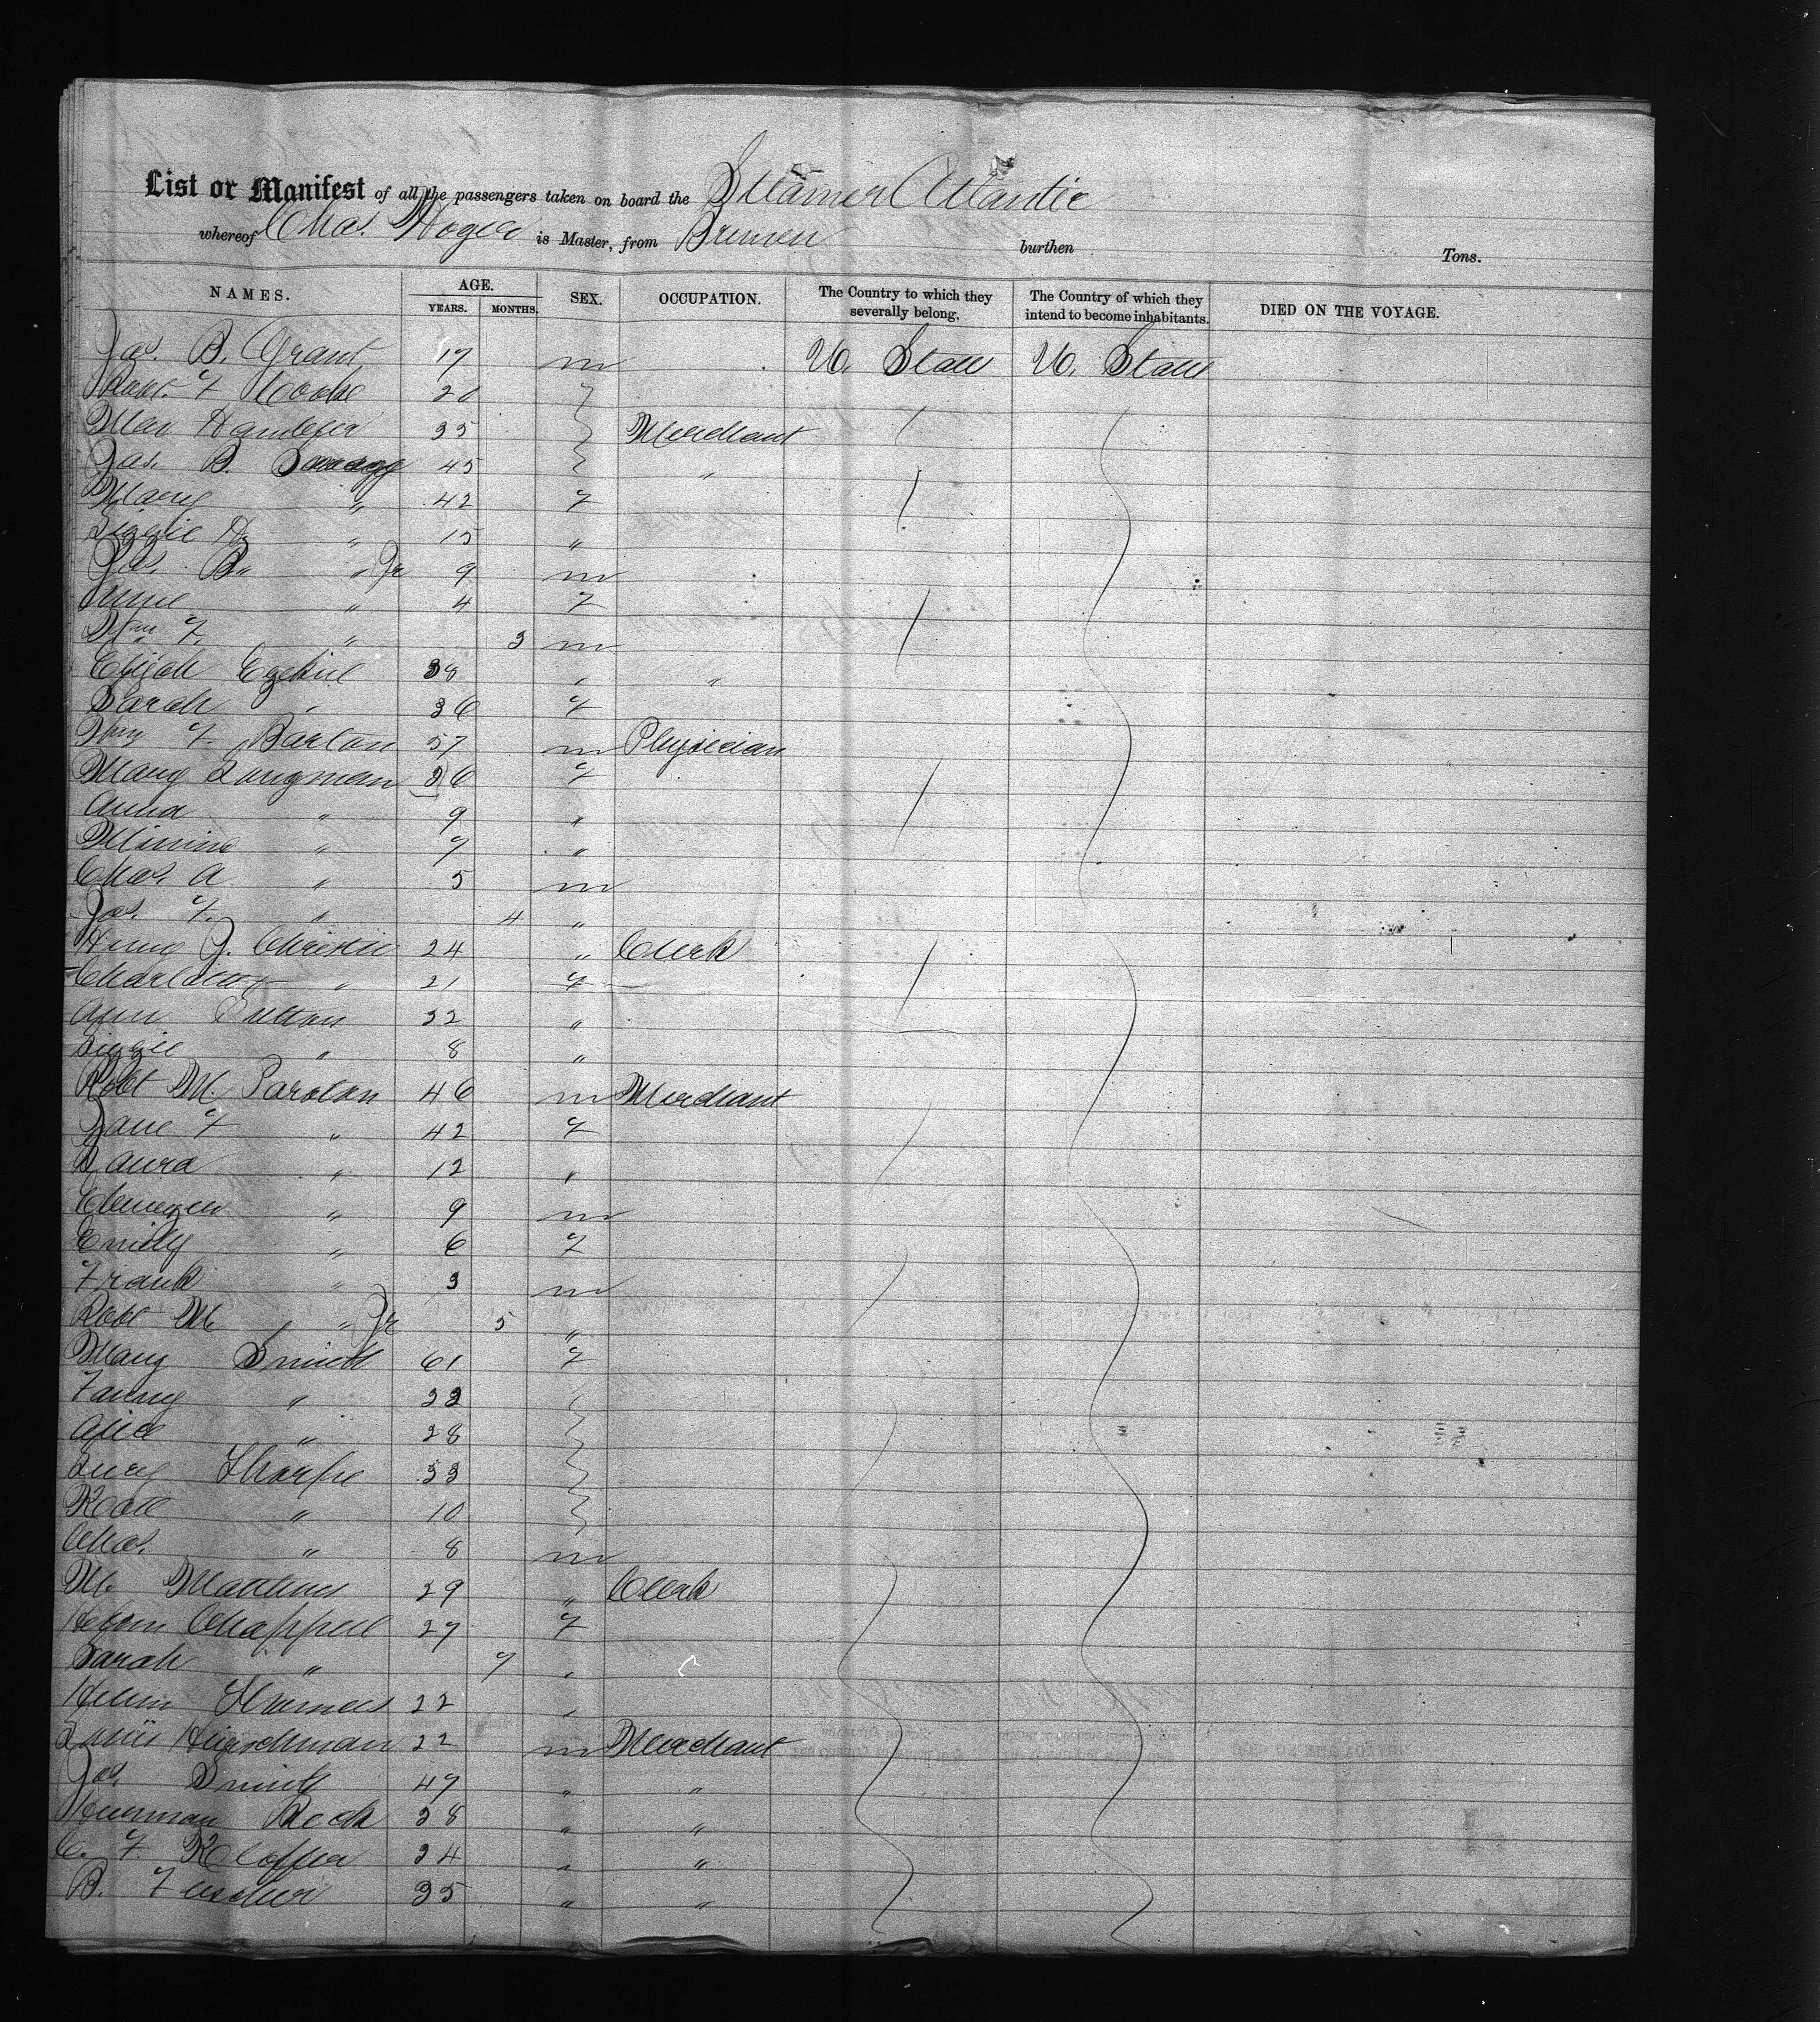 List or Manifest of all the passengers taken on board the Steamer Atlantic
whereof Chas. Hoyer is Master, from Bremen burthen Tons.
NAMES. AGE. YEARS. MONTHS. SEX. OCCUPATION. The Country to which they severally belong. The Country of which they intend to become inhabitants. DIED ON THE VOYAGE.
Jas. B. Grant 17 m U. States U. States
Robt. F Cooke 20
Max 35 Merchant
Jas. B. 45 "
Mary " 42 f
Lizzie H. " 15 "
Jas. B. " Jr 9 m
Annie " 4 f
Wm F. " 3 m
Elijah Ezekiel 38 " "
Sarah " 36 f
Wm F. Barton 57 m Physician
Mary Longman 36 f
Anna " 9 "
Minnie " 7 "
Chas. A " 5 m
Jos. F. " 4 "
Henry J. Christie 24 " Clerk
Charlotte " 21 f
Ann Sutton 32 "
Lizzie " 8 "
Robt M. 46 m Merchant
Jane F " 42 f
Laura " 12 "
Ebenezer " 9 m
Emily " 6 f
Frank " 3 m
Robt M. " Jr 5 "
Mary Smith 61 f
Fanny "
Alice " 28
Lucy Sharpe 33
Kate " 10
Chas. " 8 m
M. Matthews 29 " Clerk
Chappell 27 f
Sarah " 7 "
Helen 22 "
Louis Hirschman 22 m Merchant
Jos. Smith 47 " "
Herrman Beck 38 " "
C. F. 34 " "
B. Fischer 35 " "